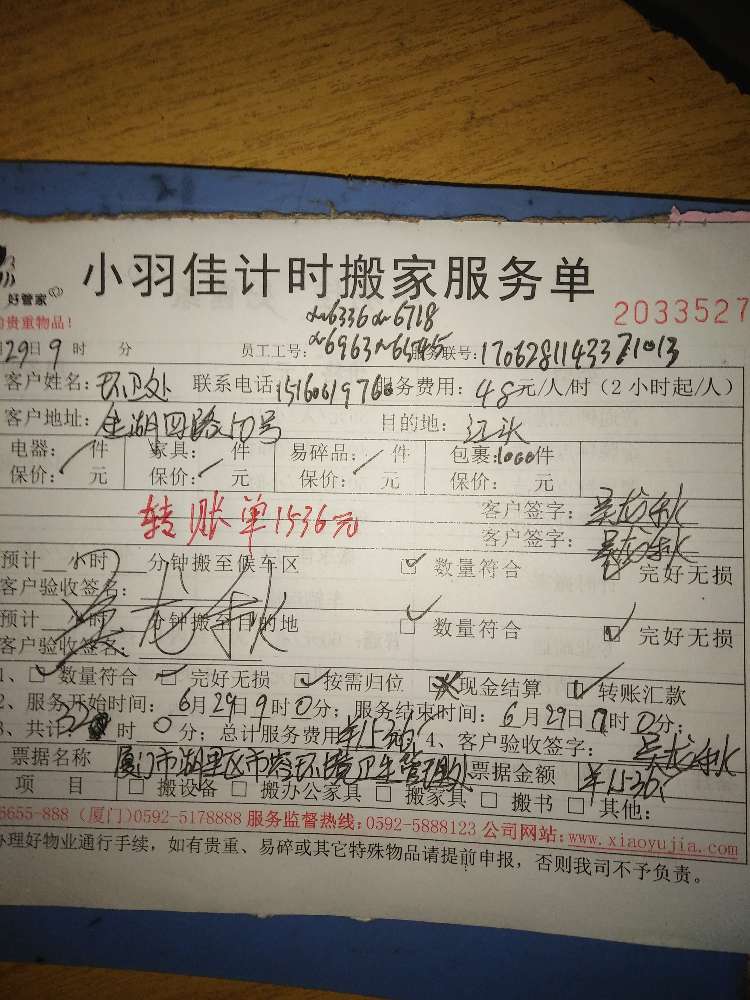 小羽佳计时搬家服务单
好管家
贵重物品!
2033527
29日 9 时 分 员工工号: 服务联号: 17062811433721013
客户姓名: 环卫处 联系电话: 服务费用: 48元/人/时(2小时起/人)
客户地址: 金湖四路10号 目的地: 江头
电器: 件 家具: 件 易碎品: 件 包裹: 1000件
保价: 元 保价: 元 保价: 元 保价: 元
转账单1536元 客户签字:
客户签字:
预计 小时 分钟搬至候车区 数量符合 完好无损
客户验收签名:
预计 小时 分钟搬至目的地 数量符合 完好无损
客户验收签名:
1、 数量符合 完好无损 按需归位 现金结算 转账汇款
2、服务开始时间: 6月29日9时0分; 服务结束时间: 6月29日 时0分;
3、共计: 32 时 0分; 总计服务费用 4、客户验收签字:
票据名称 厦门市湖里区市容环境卫生管理处 票据金额 ¥1536
项 目 搬设备 搬办公家具 搬家具 搬书 其他:
6655-888 (厦门)0592-5178888 服务监督热线:0592-5888123 公司网站:www.xiaoyujia.com
办理好物业通行手续,如有贵重、易碎或其它特殊物品请提前申报,否则我司不予负责。